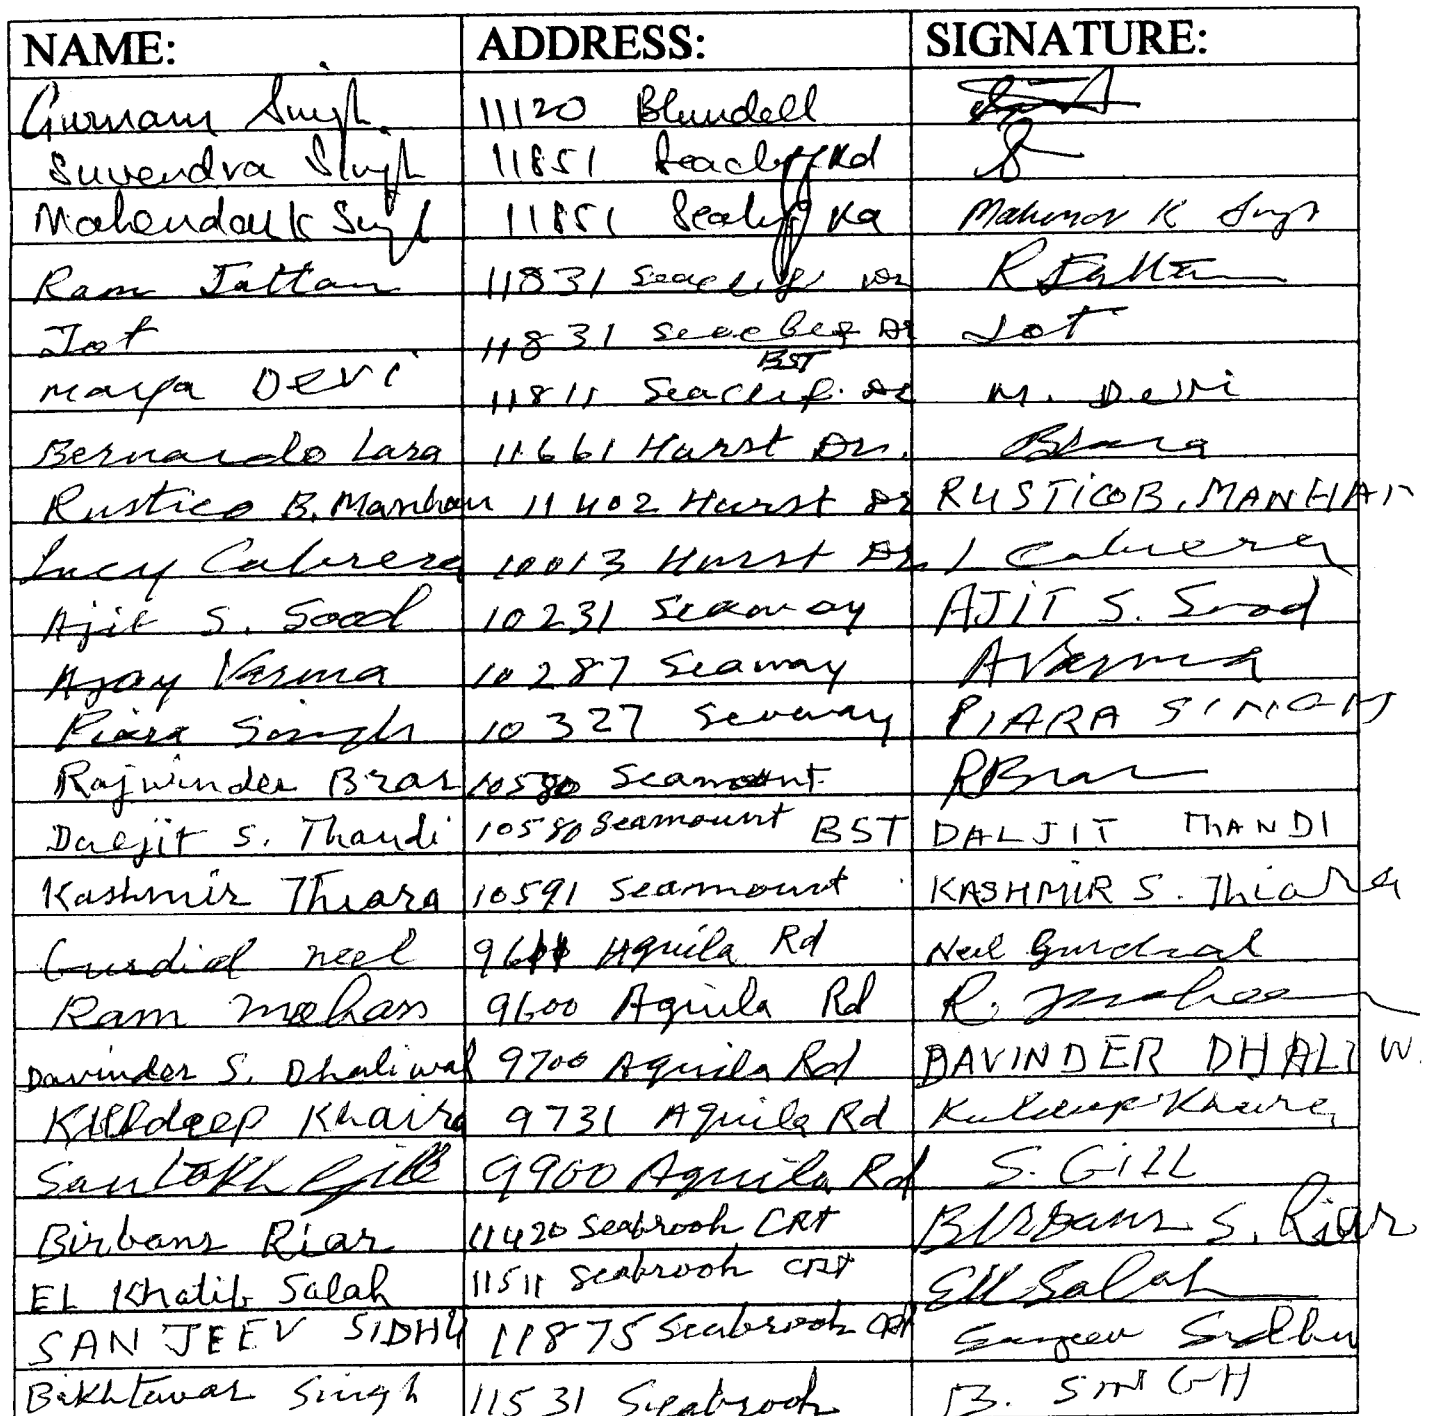 NAME: ADDRESS: SIGNATURE:
Gurnam Singh 11120 Blundell
Suvendra Singh 11851 Seacliff Rd
Mahendar K Singh 11851 Seacliff Rd Mahendr K Singh
Ram Jattan 11831 Seacliff Dr R Jattan
Jot 11831 Dr Jot
BST
Maya Devi 11811 Seaclif. Dr M. Devi
Bernardo Lara 11661 Hurst Dr. BLara
Rustico B. Manhan 11402 Hurst Dr RUSTICO B. MANHAN
Lucy Cabrera 10013 Hurst Dr. L Cabrera
Ajit S. Sood 10231 Seaway AJIT S. Sood
Ajay Varma 10287 Seaway AVarma
Piara Singh 10327 Seaway PIARA SINGH
Rajwinder Brar 10580 Seamount RBrar
Daljit S. Thandi 10580 Seamount BST DALJIT THANDI
Kashmir Thiara 10591 Seamount KASHMIR S. Thiara
Gurdial neel Aquila Rd Neel Gurdial
Ram mohan 9600 Aquila Rd R. mohan
Davinder S. Dhaliwal 9700 Aquila Rd DAVINDER DHALIW
Kuldeep Khaira 9731 Aquila Rd Kuldeep Khaira
Santokh Gill 9900 Aquila Rd S. GILL
Birbans Riar 11420 Seabrook CRT Birbans S. Riar
EL Khatib Salah 11511 Seabrook CRT Salah
SANJEEV SIDHU 11875 Seabrook CRT Sanjeev Sidhu
Bakhtawar Singh 11531 Seabrook B. SINGH